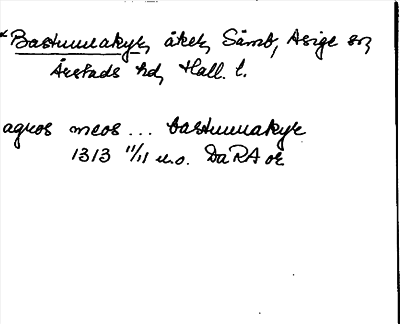 *Bastumeakyr, åker, Sämb, Asige sn,
Årstads hd, Hall. l.
agros meos ... bastumeakyr
1313 11/11 u.o. DaRA or